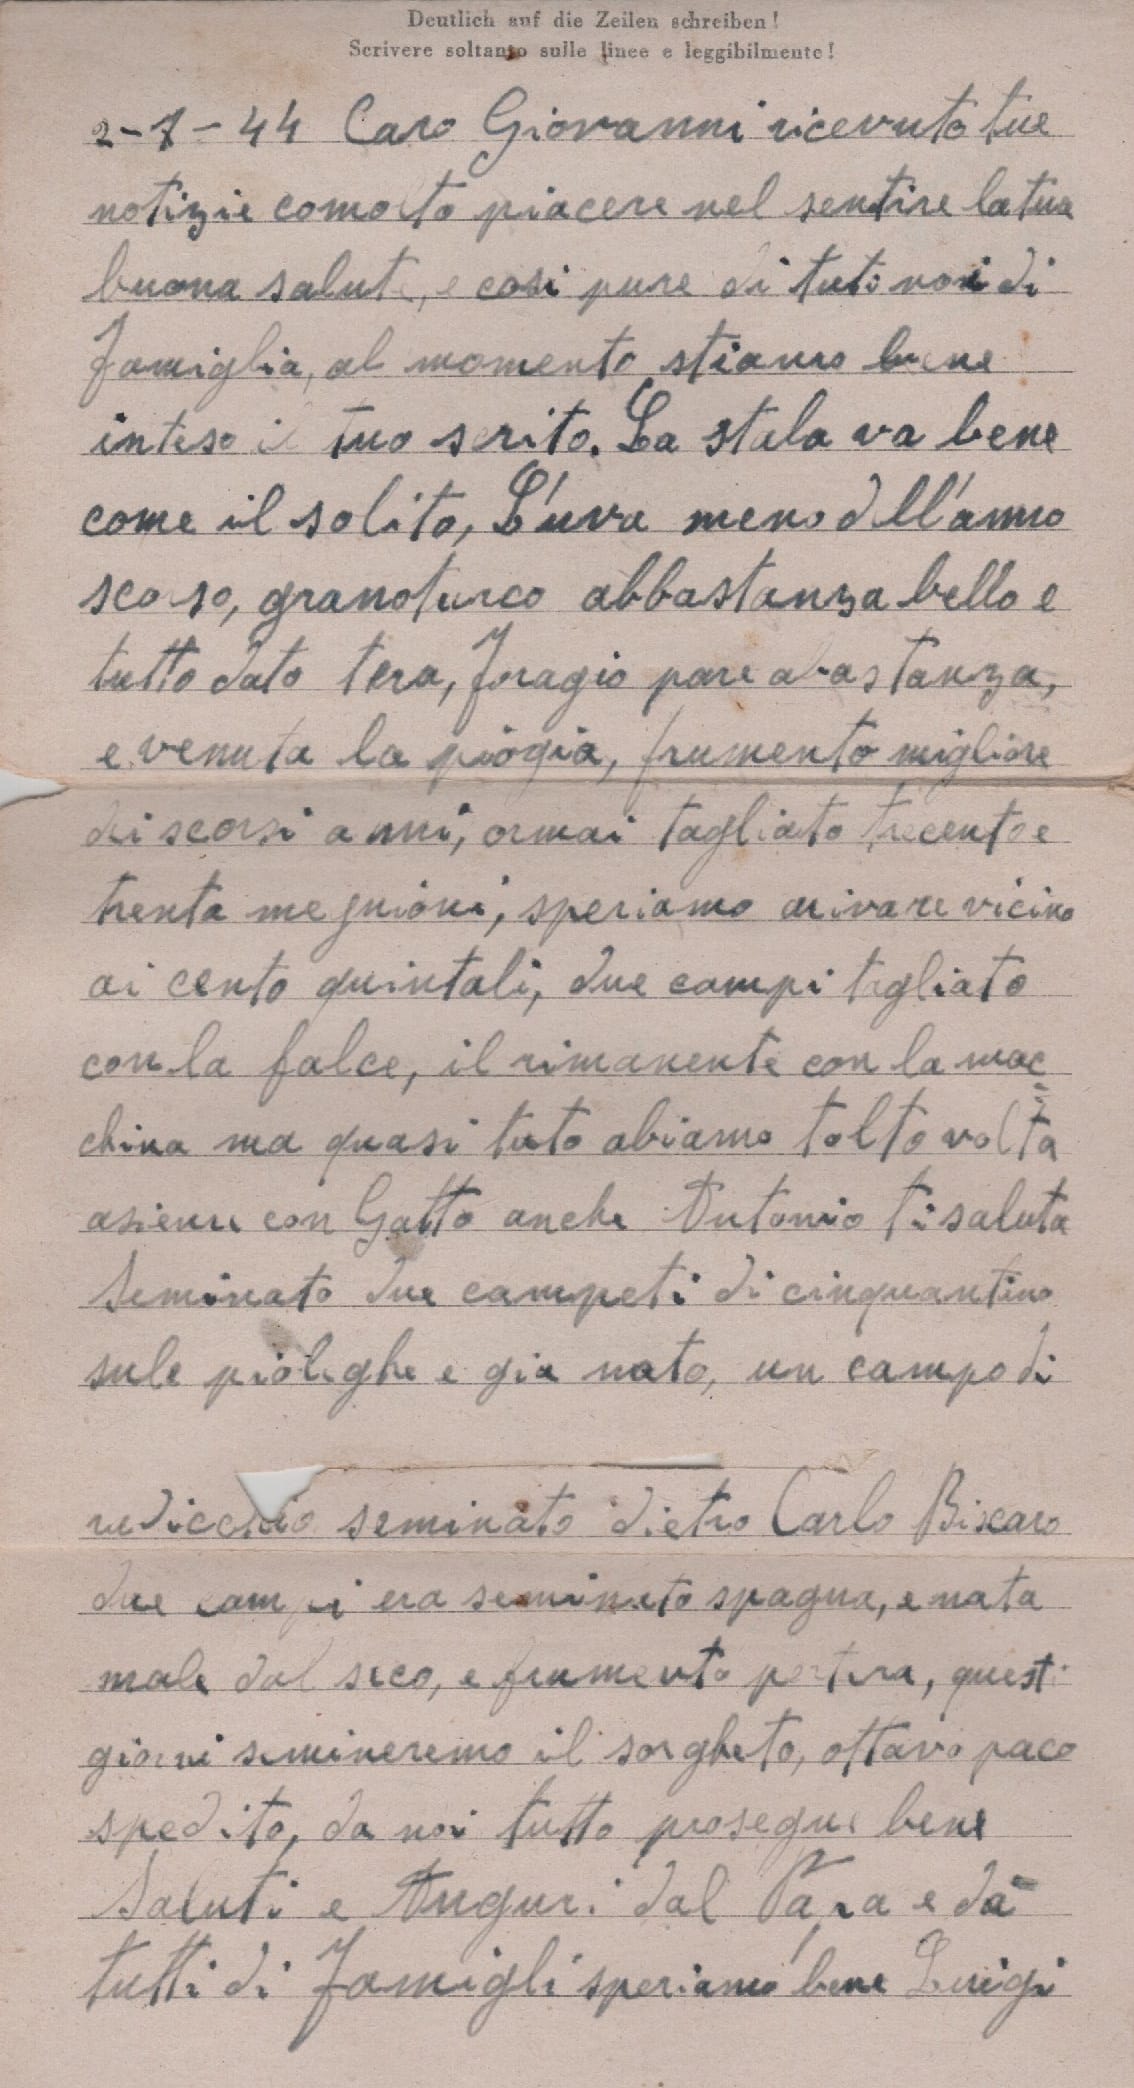 Deutlich auf die Zeilen schreiben!
Scrivere soltanto sulle linee e leggibilmente!
2-7-44 Caro Giovanni ricevuto tue
notizie comolto piacere nel sentire la tua
buona salute, e cosi pure di tuti noi di
Famiglia, al momento stiamo bene
inteso il tuo scrito. La stala va bene
come il solito, L'uva meno dell'anno
scorso, granoturco abbastanza bello e
tutto dato tera, foragio pare abastanza,
e venuta la piogia, frumento migliore
dei scorsi anni, ormai tagliato trecento e
trenta speriamo arivare vicino
ai cento quintali, due campi tagliato
con la falce, il rimanente con la mac=
china ma quasi tuto abiamo tolto volta
asieme con Gatto anche Antonio ti saluta
Seminato due campeti di cinquantino
sule pioleghe e gia nato, un campo di
radicchio seminato dietro Carlo Biscaro
due campi era seminato spagna, e nata
male dal seco, e frumento per tera, questi
giorni semineremo il sorgheto, ottavo paco
spedito, da noi tutto prosegue bene
Saluti e Anguri dal Papa e da
tutti di Famigli speriamo bene Luigi